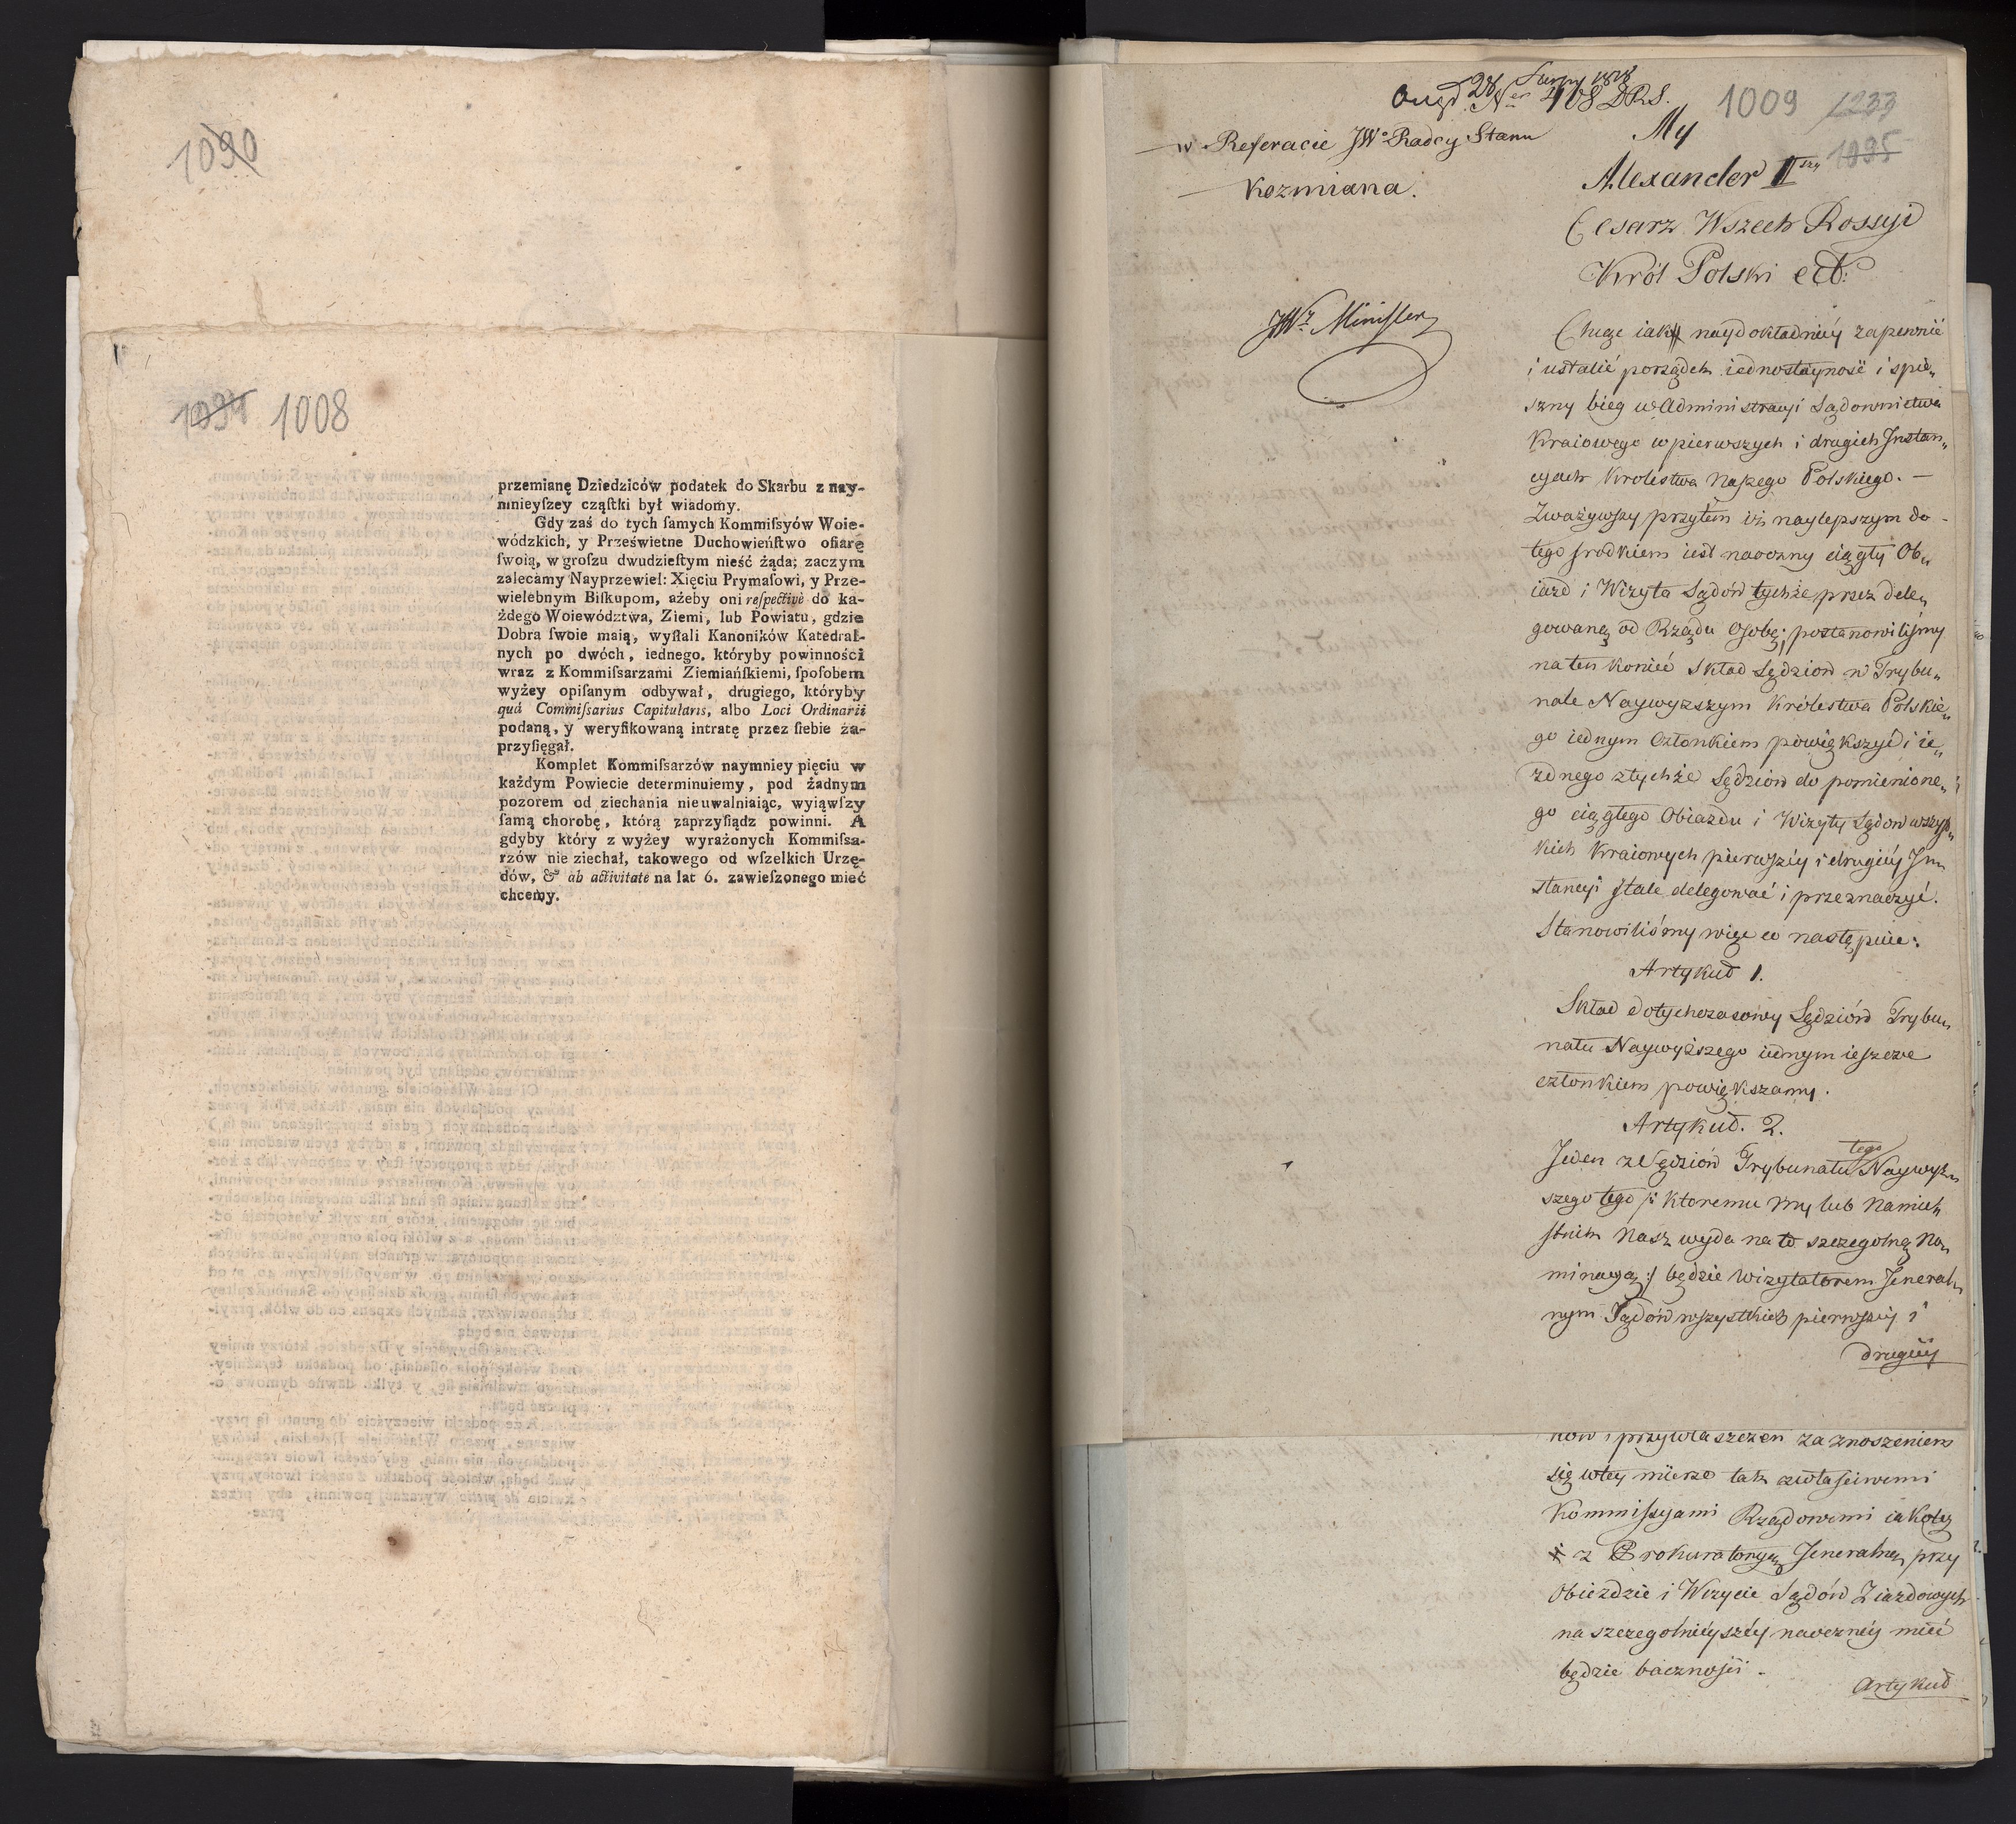 1090
1091 1008
przemianę Dziedziców podatek do Skarbu z nay-
mnieyſzey cząſtki był wiadomy.
Gdy zaś do tych ſamych Kommiſsyów Woie-
wódzkich, y Prześwietne Duchowieńſtwo ofiarę
ſwoią, w groſzu dwudzieſtym nieść żąda; zaczym
zalecamy Nayprzewiel: Xięciu Prymaſowi, y Prze-
wielebnym Biſkupom, ażeby oni reſpectivè do ka-
żdego Woiewództwa, Ziemi, lub Powiatu, gdzie
Dobra ſwoie maią, wyſłali Kanoników Katedral-
nych po dwóch, iednego, któryby powinności
wraz z Kommiſsarzami Ziemiańſkiemi, ſpoſobem
wyżey opiſanym odbywał, drugiego, któryby
quà Commiſsarius Capitularis, albo Loci Ordinarii
podaną, y weryfikowaną intratę przez ſiebie za-
przyſięgał.
Komplet Kommiſsarzów naymniey pięciu w
każdym Powiecie determinuiemy, pod żadnym
pozorem od ziechania nieuwalniaiąc, wyiąwſzy
ſamą chorobę, którą zaprzyſiądz powinni. A
gdyby który z wyżey wyrażonych Kommiſsa-
rzów nie ziechał, takowego od wſzelkich Urzę-
dów, & ab activitate na lat 6. zawieſzonego mieć
chcemy.
28 1818
Ner 408 DRS. 1009 1233
w Referacie JWo Radcy Stanu
Kozmiana.
JWy Minister
My
1095
Alexander Iszy
Cesarz Wszech Rossyi
Król Polski ect:
Chcąc iak naydokładniéy zapewnić
i ustalić porządek iednostayność i spie„
szny bieg w Administracyi Sądownictwa
Kraiowego w pierwszych i drugich Instan„
cyach Krolestwa Naszego Polskiego. —
Zważywszy przytem iż naylepszym do-
tego srodkiem iest naoczny ciągły Ob„
iazd i Wizyta Sądów tychże przez dele„
gowaną od Rządu Osobę; postanowiliśmy
na ten koniec skład Sędziow w Trybu„
nale Naywyższym Królestwa Polskie„
go iednym Członkiem powiększyć i ie„
dnego z tychże Sędziow do pomienione„
go ciągłego Obiazdu i Wizyty Sądow wszyst„
kich Kraiowych pierwszéy i drugiéy In„
stancyi stale delegować i przeznaczyć.
Stanowiliśmy więc co następuie:
Artykuł 1.
Skład dotychczasowy Sędziów Trybu„
nału Naywyższego iednym ieszcze
członkiem powiększamy.
Artykuł. 2.
Jeden z Sędziów Trybunału tego Naywyż„
szego tego /: ktoremu my lub Namiest„
stnik Nasz wyda na to szczegolną No„
minacyą :/ będzie Wizytatorem Jeneral„
nym Sądów wszystkich pierwszéy i
drugiéy
ków i przywłaszczeń za znoszeniem
się w téy mierze tak z właściwemi
Kommissyami Rządowemi iakoteż
z Prokuratoryą Jeneralną, przy
Obieździe i Wizycie Sądów Ziazdowych
na szczegolniéyszéy naoczney mieć
będzie baczności.
Artykuł